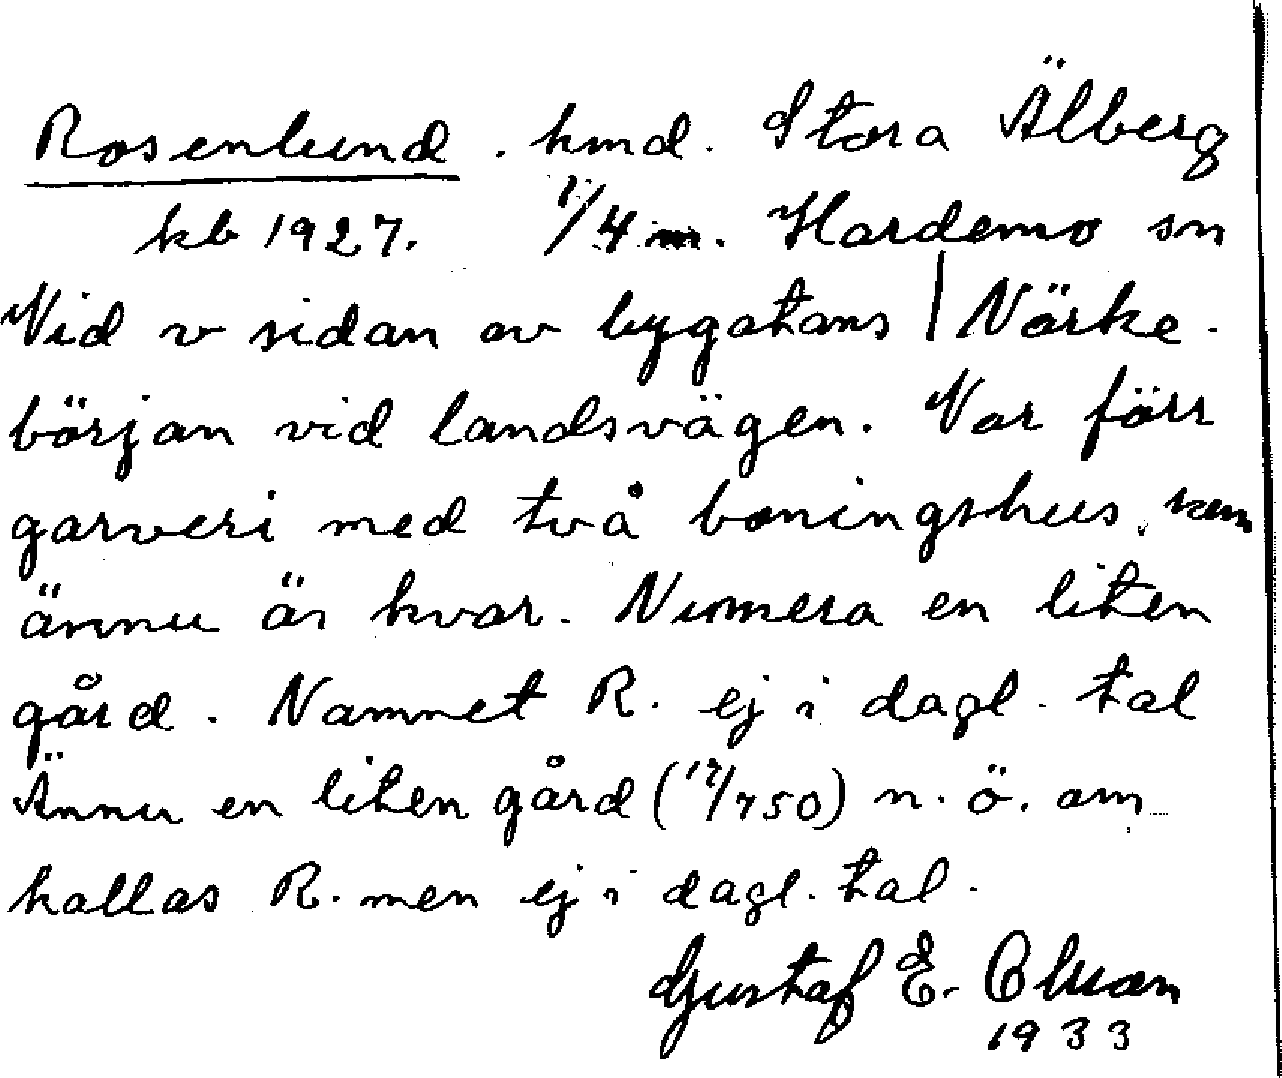 Rosenlund. hmd. Stora Älberg
kb 1927. 1/4 m. Hardemo sn
Vid v sidan av bygatans | Närke.
början vid landsvägen. Var förr
garveri med två boningshus, som
ännu är kvar. Numera en liten
gård. Namnet R. ej i dagl. tal
Ännu en liten gård (17/750) n. ö. om
kallas R. men ej i dagl. tal.
Gustaf E.
1933